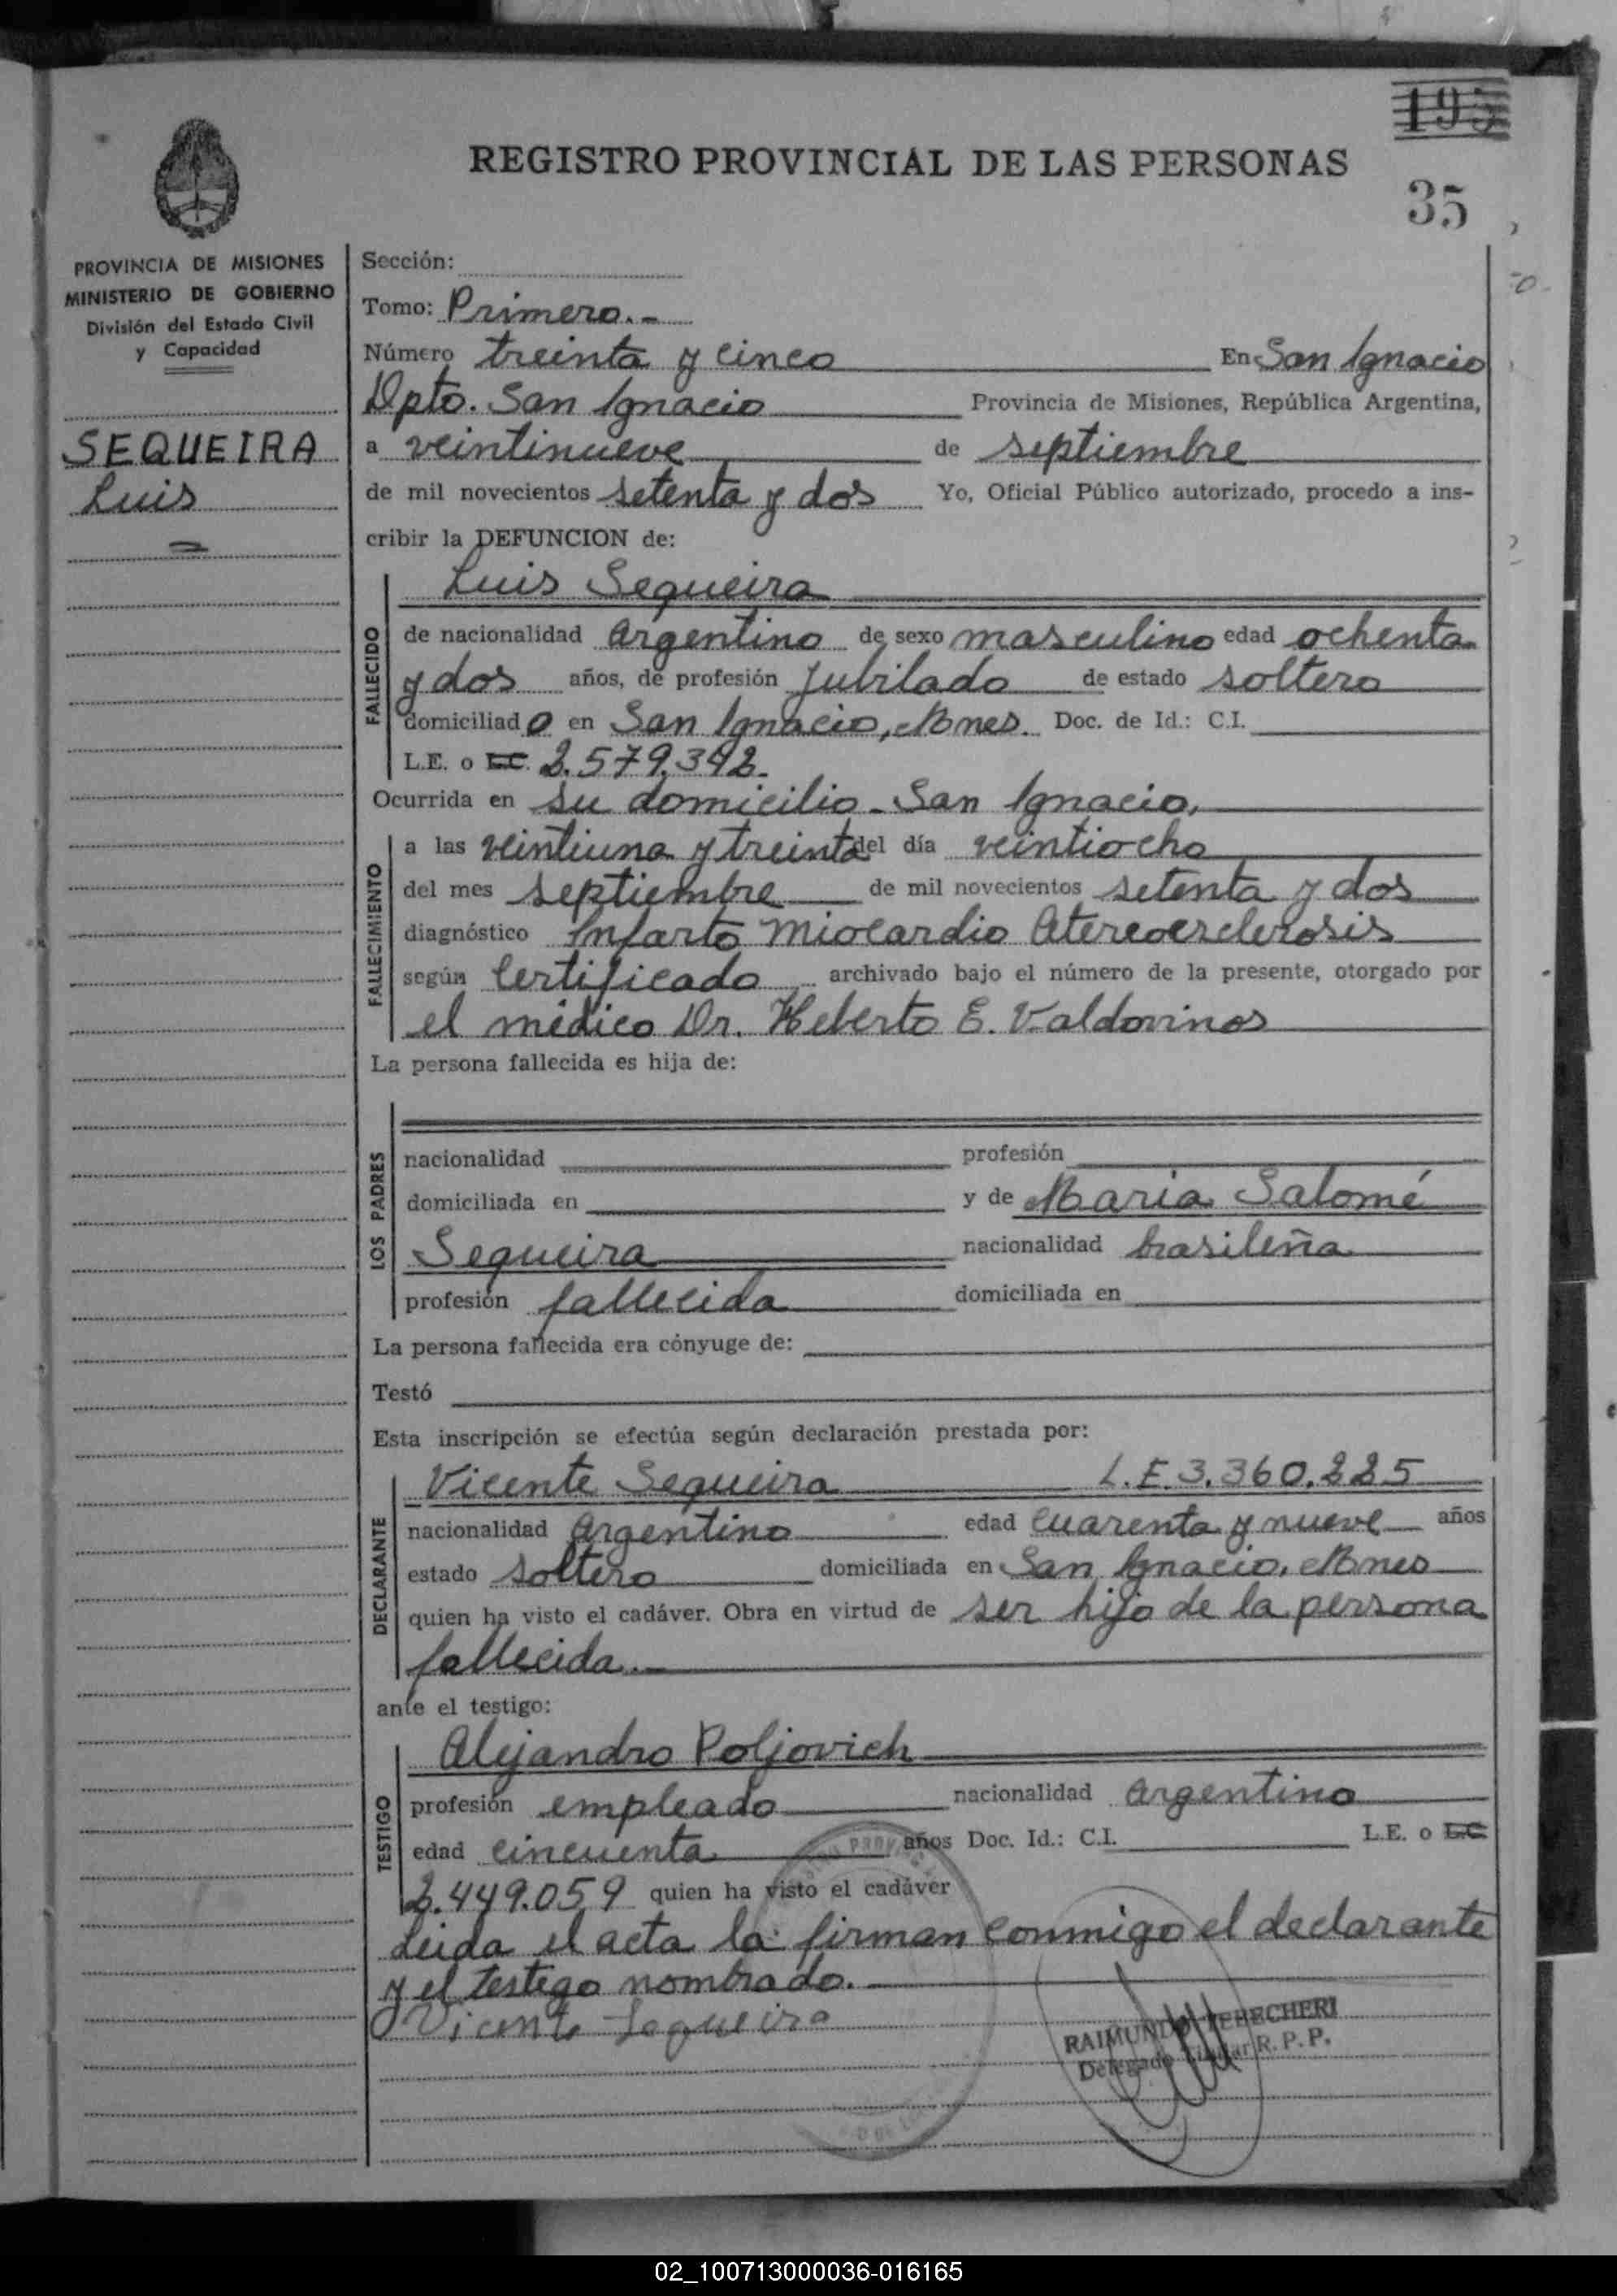 195
REGISTRO PROVINCIAL DE LAS PERSONAS
35
PROVINCIA DE MISIONES
MINISTERIO DE GOBIERNO
División del Estado Civil
y Capacidad
SEQUEIRA
Luis
Sección:
Tomo: Primero.-
Número treinta y cinco En San Ignacio
Dpto. San Ignacio Provincia de Misiones, República Argentina,
a veintinueve de septiembre
de mil novecientos setenta y dos Yo, Oficial Público autorizado, procedo a ins-
cribir la DEFUNCION de:
FALLECIDO
Luis Sequeira
de nacionalidad Argentino de sexo masculino edad ochenta
y dos años, de profesión Jubilado de estado soltero
domiciliado en San Ignacio, Mnes. Doc. de Id.: C.I.
L.E. o L.C. 2.579.342.
Ocurrida en su domicilio - San Ignacio,
FALLECIMIENTO
a las veintiuna y treinta del día veintiocho
del mes septiembre de mil novecientos setenta y dos
diagnóstico Infarto miocardio
según Certificado archivado bajo el número de la presente, otorgado por
el médico Dr. Heberto E. Valdovinos
La persona fallecida es hija de:
LOS PADRES
nacionalidad profesión
domiciliada en y de María Salomé
Sequeira nacionalidad brasileña
profesión fallecida domiciliada en
La persona fallecida era cónyuge de:
Testó
Esta inscripción se efectúa según declaración prestada por:
DECLARANTE
Vicente Sequeira L.E. 3.360.225
nacionalidad Argentino edad cuarenta y nueve años
estado soltero domiciliada en San Ignacio, Mnes
quien ha visto el cadáver. Obra en virtud de ser hijo de la persona
fallecida.-
ante el testigo:
TESTIGO
Alejandro Poljovich
profesión empleado nacionalidad Argentino
edad cincuenta años Doc. Id.: C.I. L.E. o L.C.
2.449.059 quien ha visto el cadáver
Leída el acta la firman conmigo el declarante
y el testigo nombrado.
Vicente Sequeira
RAIMUNDO
Delegado Titular R. P. P.
02_100713000036-016165